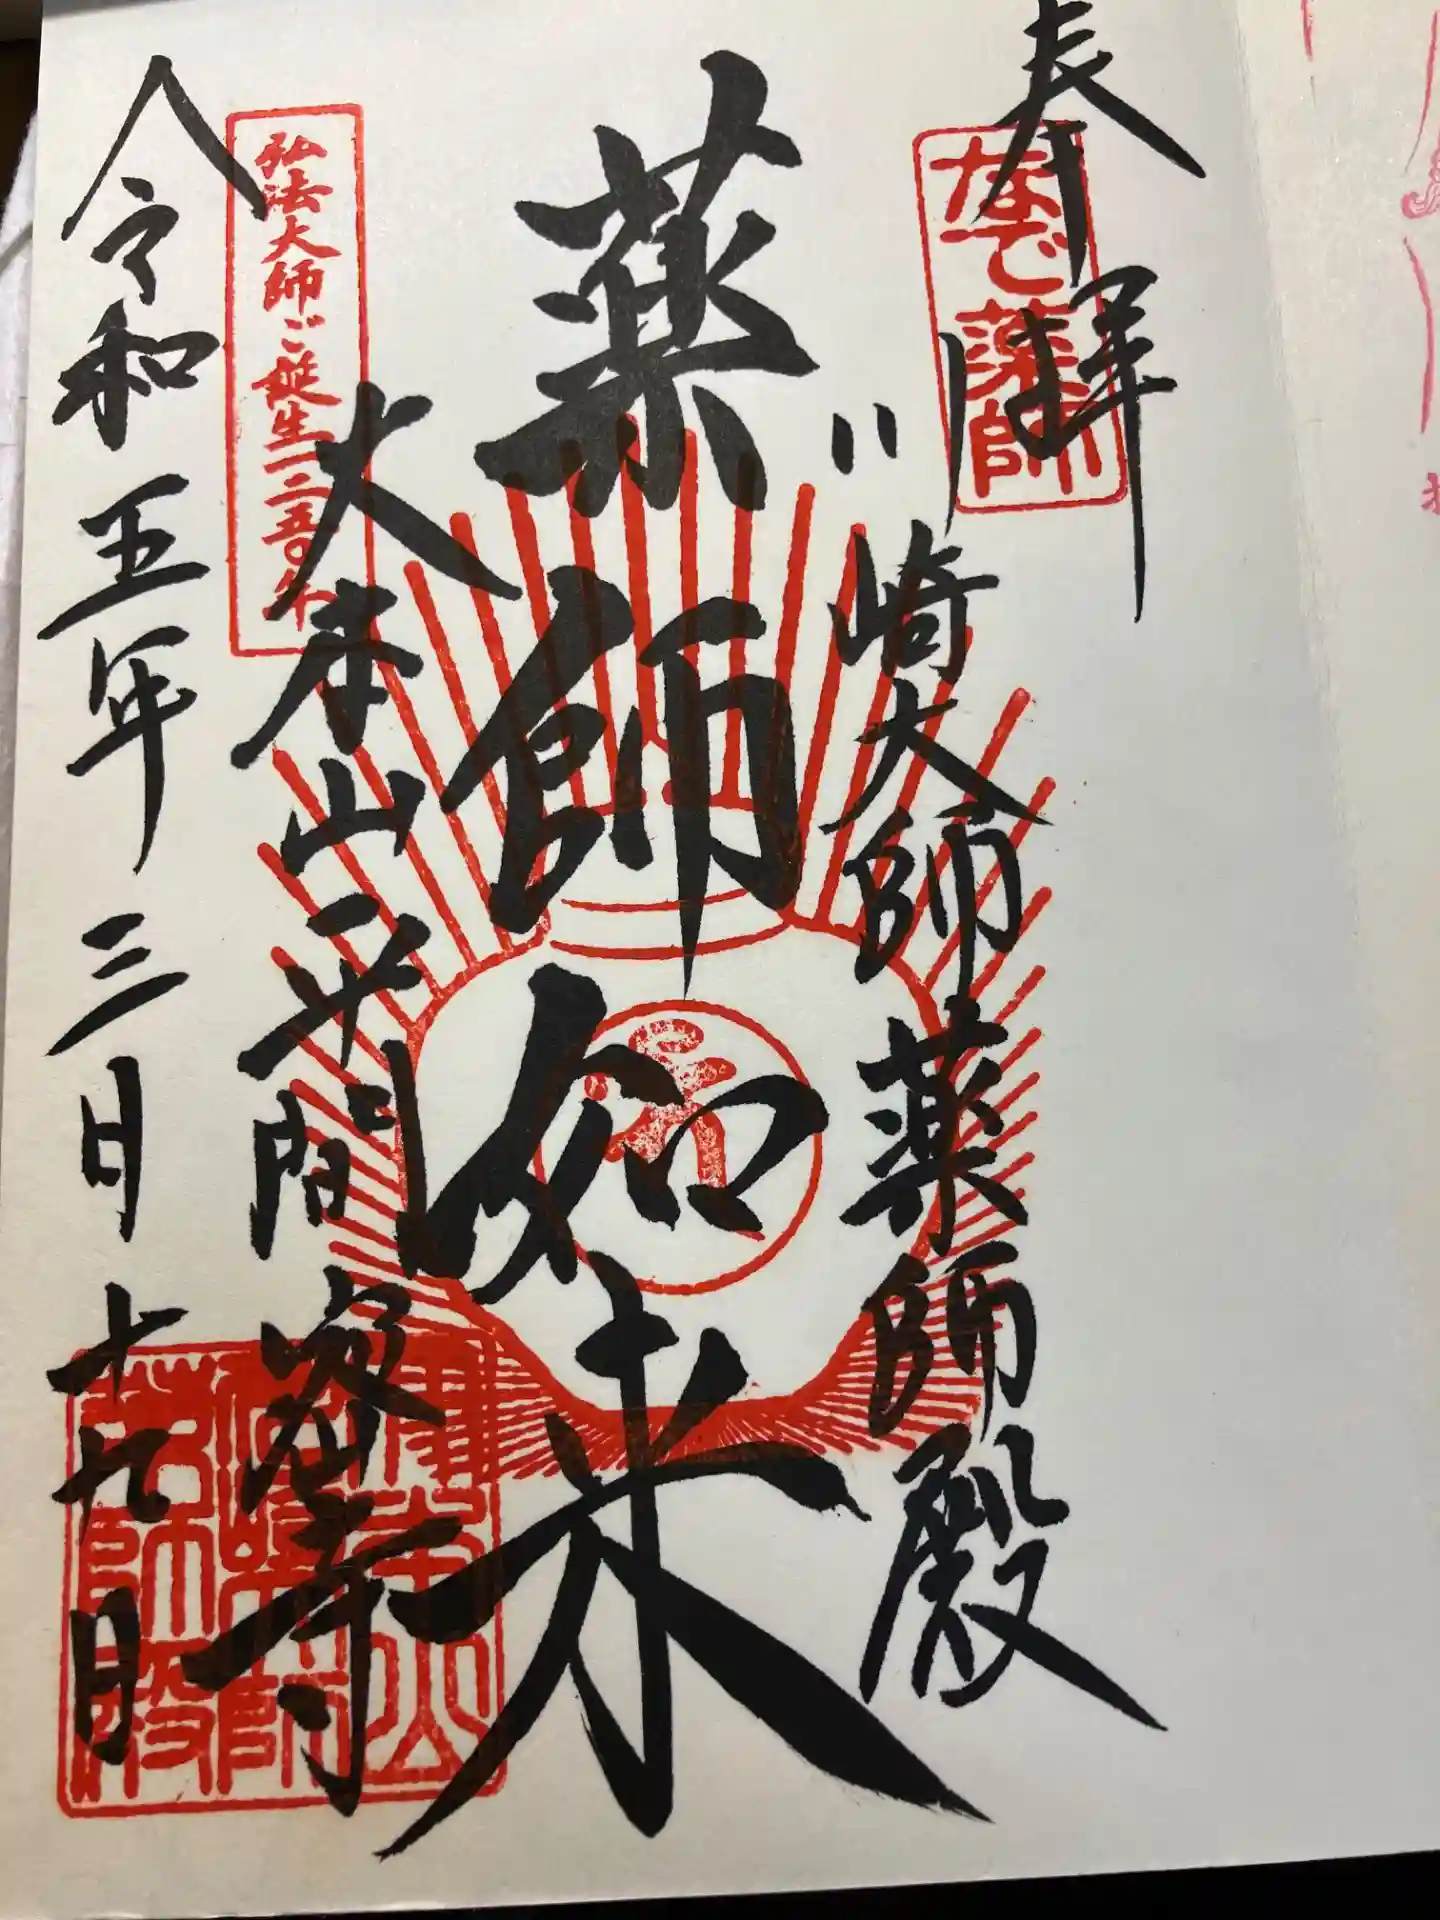 奉拝
なで薬師
川崎大師薬師殿
薬師如来
大本山平間寺
弘法大師ご誕生一二五〇年
令和五年三月十九日